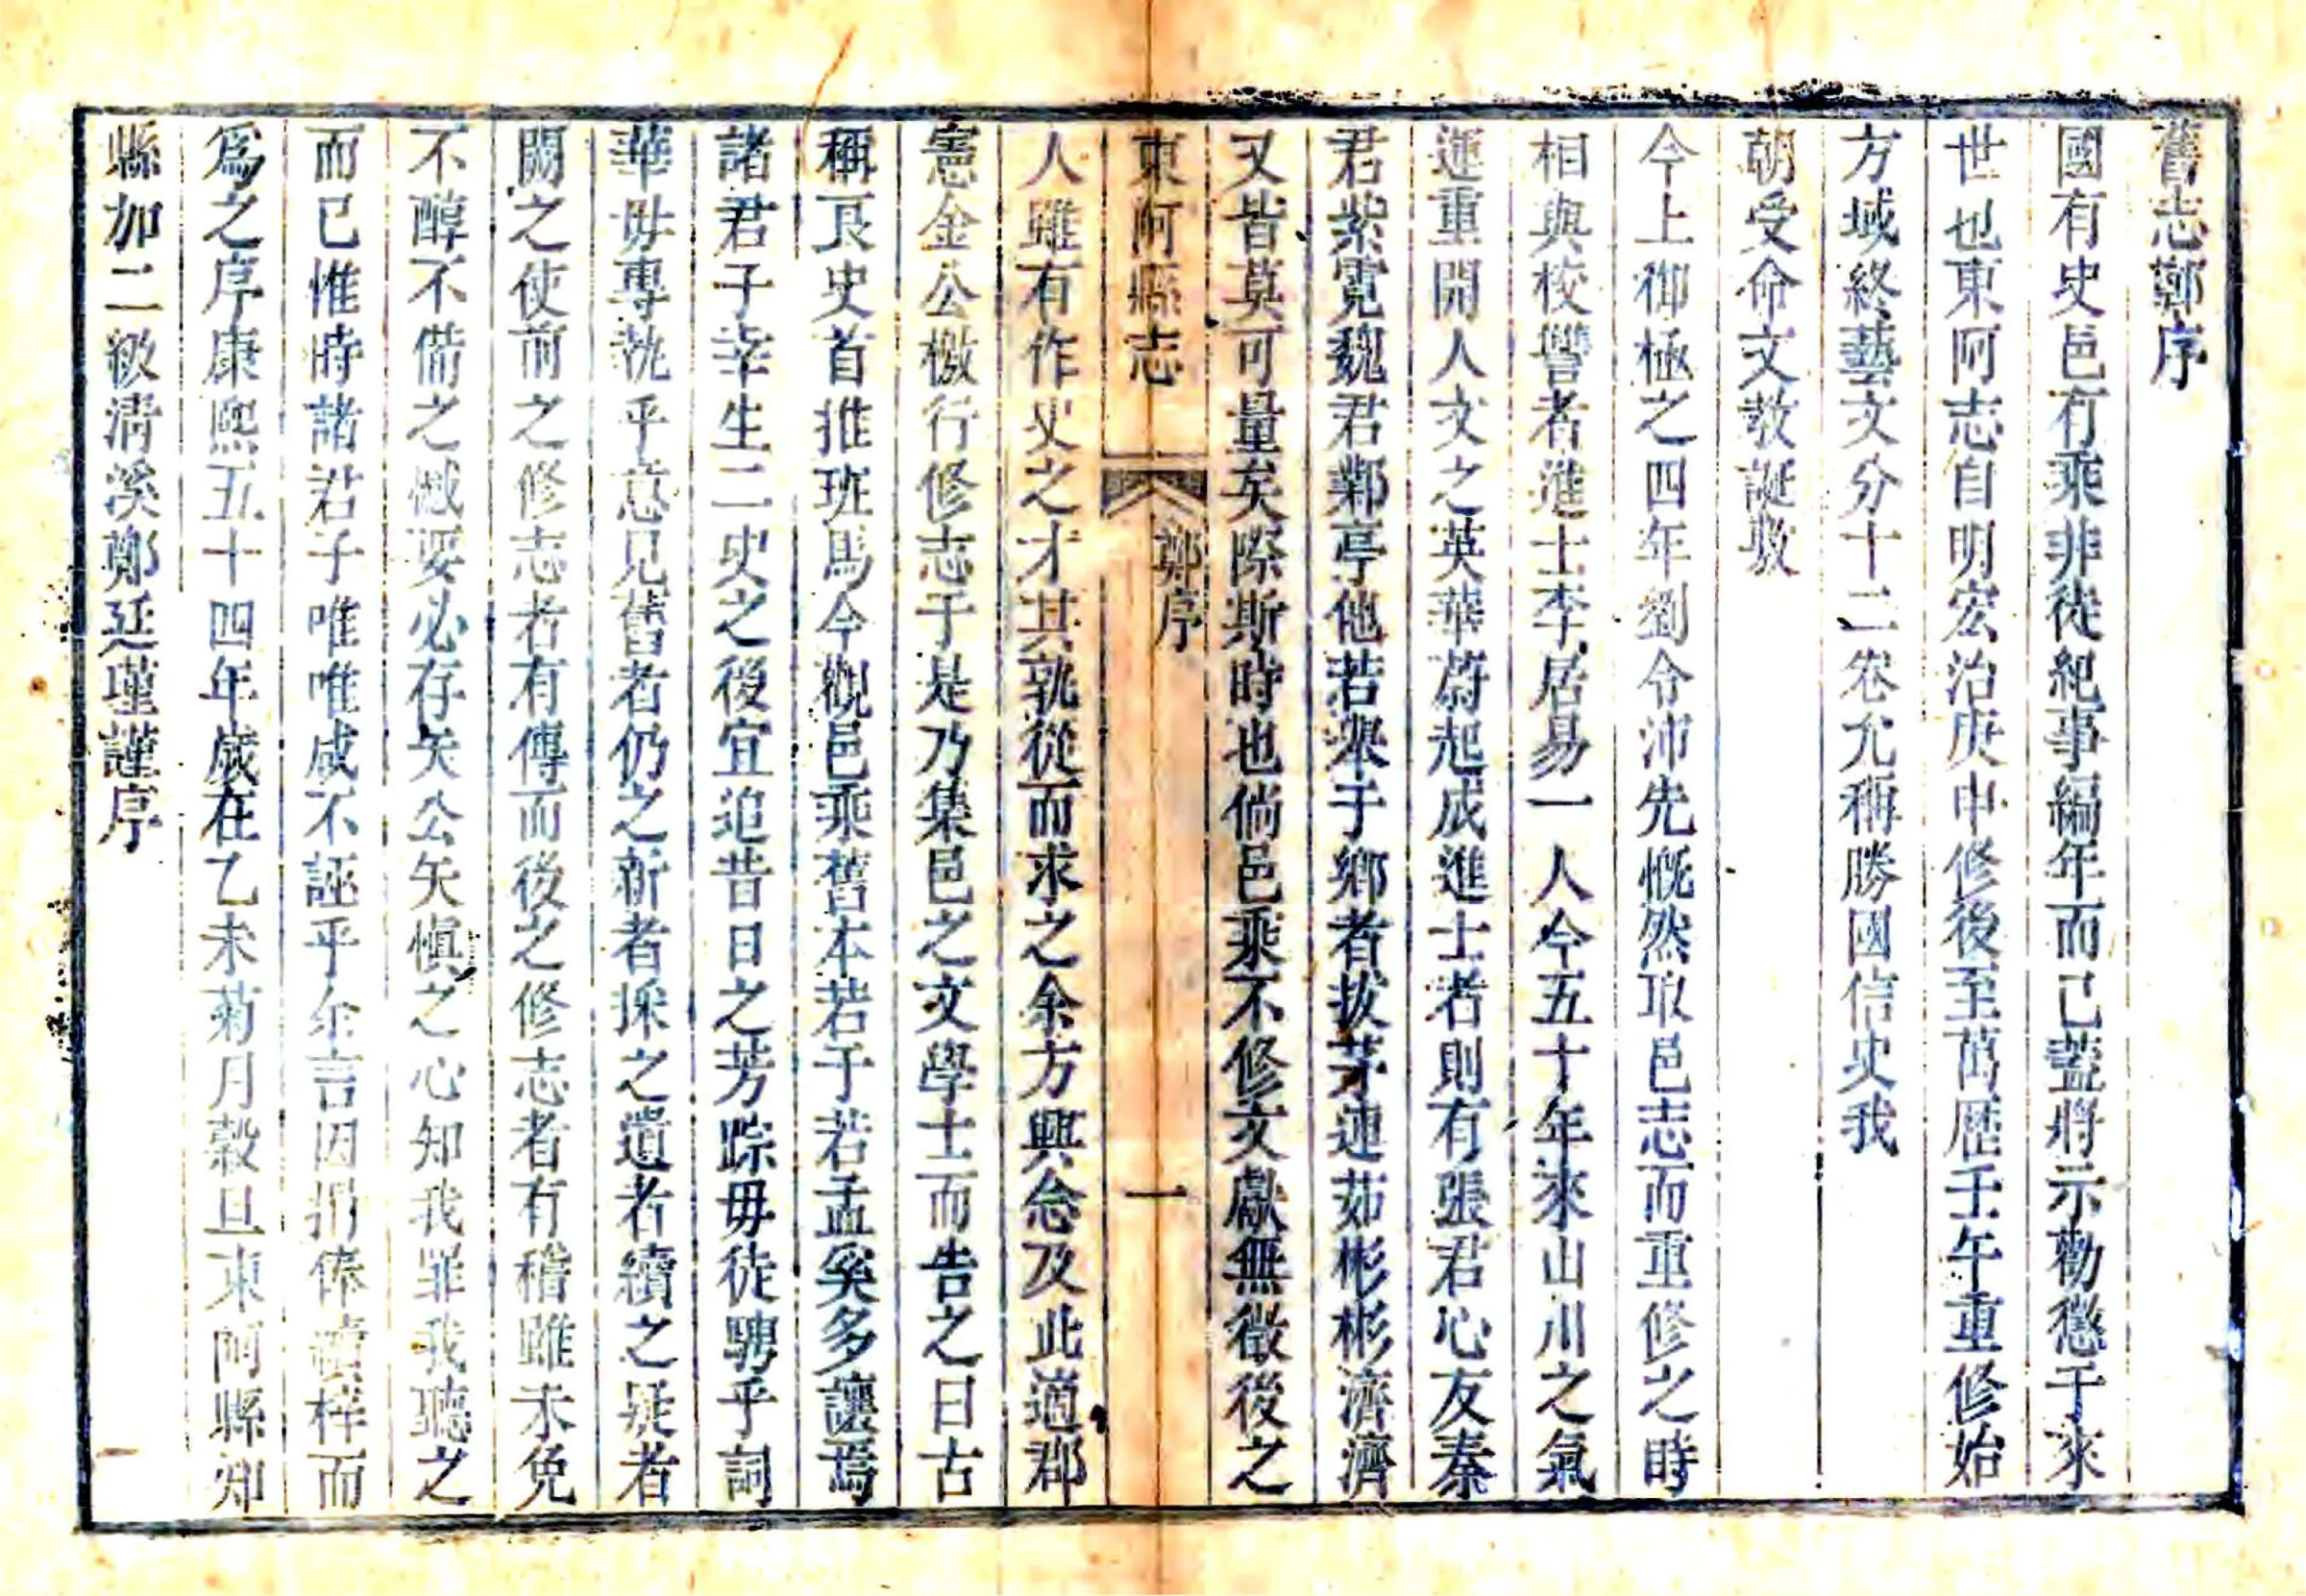 舊志鄭序
國有史邑有乘非徒紀事編年而已蓋將示勸懲于來
世也東阿志自明宏治庚申修後至萬歷壬午重修始
方域終藝文分十二卷允稱勝國信史我
朝受命文教誕敷
今上御極之四年劉令沛先慨然取邑志而重修之時
相與校讐者進士李居易一人今五十年來山川之氣
運重開人文之英華蔚起成進士者則有張君心友秦
君紫霓魏君鄴亭他若舉于鄉者拔茅連茹彬彬濟濟
又皆莫可量矣際斯時也倘邑乘不修文獻無徵後之
東阿縣志
鄭序
一
人雖有作史之才其孰從而求之余方興念及此適郡
憲金公檄行修志于是乃集邑之文學士而告之曰古
稱良史首推班馬今觀邑乘舊本若于若孟奚多讓焉
諸君子幸生二史之後宜追昔日之芳踪毋徒騁乎詞
華毋專執乎意見舊者仍之新者採之遺者續之疑者
闕之使前之修志者有傳而後之修志者有稽雖未免
不醇不備之憾要必存矢公矢愼之心知我罪我聽之
而已惟時諸君子唯唯咸不誣乎余言因捐俸讀梓而
爲之序康熙五十四年歲在乙未菊月穀旦東阿縣知
縣加二級清溪鄭廷瑾謹序